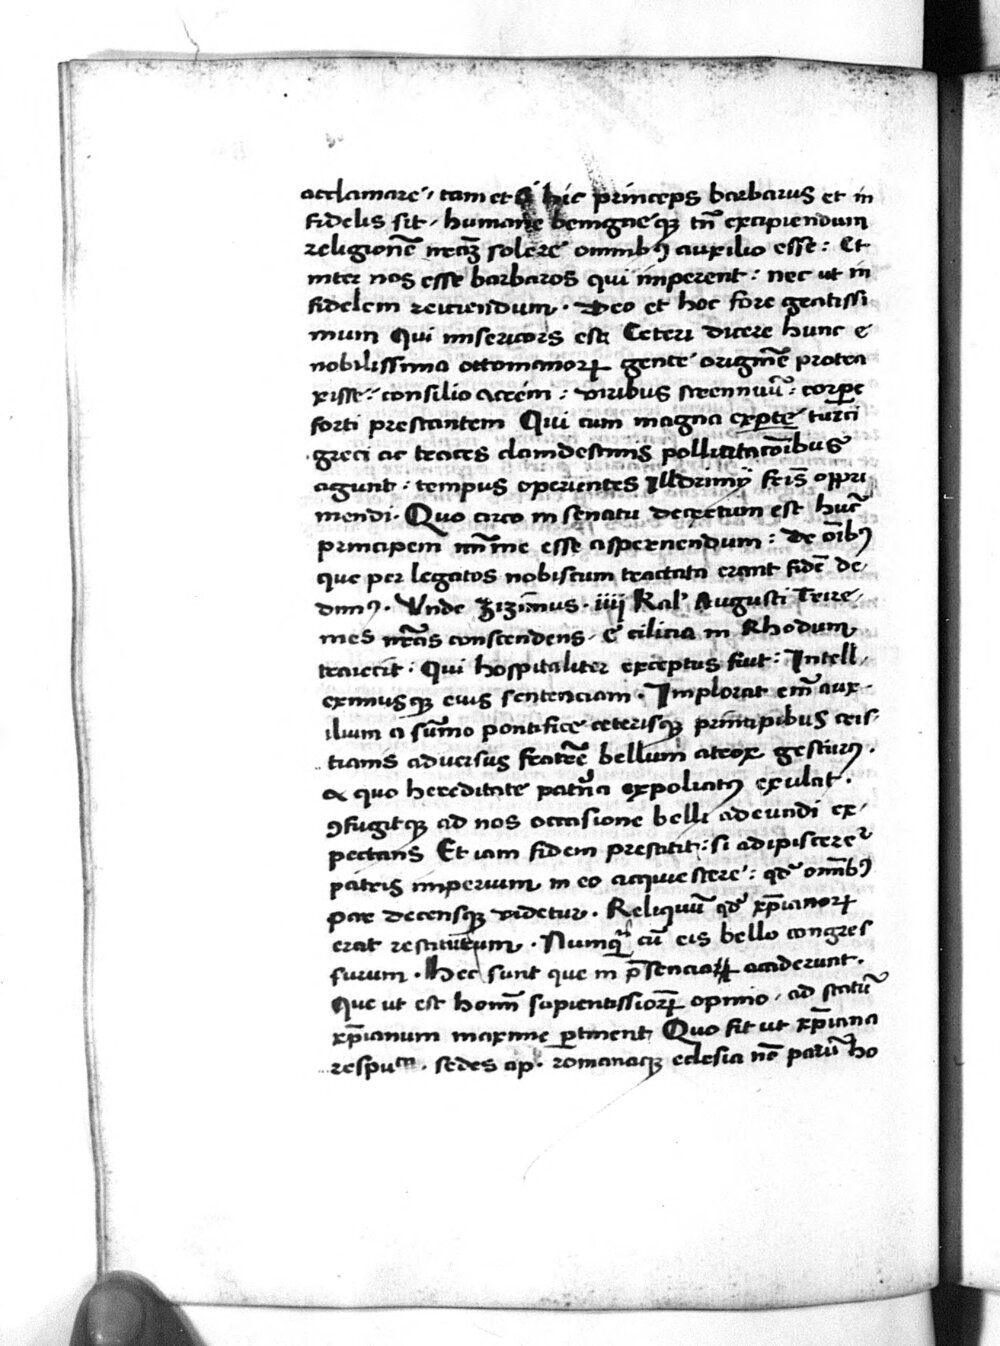 acclamare / tam et si hic princeps barbarus et in
fidelis sit / humane benigneqꝫ tñ excipiendum
religionẽ nr̃aꝫ solere omnibꝰ auxilio esse : Et
inter nos esse barbaros qui imperent : nec ut in
fidelem reiciendum . Deo et hoc fore gratissi
mum Qui misericors est Ceteri dicere hunc e
nobilissima ottomanoꝝ gente originẽ protra
xisse : consilio acrem : viribus strennuũ : corꝑe
forti prestantem Qui cum magna exꝑte turci
greci ac traces clamdestinis pollicitatõibus
agunt : tempus operientes Illdrimÿ frĩs oppri
mendi . Quo circo in senatu decretum est huc̃
principem minime esse aspernendum : De oĩbꝰ
que per legatos nobiscum tractata erant fidẽ de/
dimꝰ . Unde Zizimus . iiij Kal' Augusti Trire/
mes nr̃as conscendens / e cilicia in Rhodum
traiecit . Qui hospitaliter exceptus fuit : Intell/
eximusqꝫ eius sentenciam . Implorat em̃ aux
ilium a sũmo pontifice ceterisqꝫ principibus cris/
tianis adversus fratrẽ bellum atrox gesturꝰ .
a quo hereditate patr̃na expoliatꝰ exulat .
ꝯfugitqꝫ ad nos occasione belli adeundi ex/
pectans Et iam fidem prestitit : si adipisceret̃
patris imperium in eo acquiescere : qd̃ omnibꝰ
pax decensqꝫ videtur . Reliquũ qd̃ xp̃ianoꝝ
erat restituturum . Numqᷓ cũ eis bello congres
surum . Hec sunt que in p̃senciaꝝ acciderunt .
Que ut est homĩ sapientissioꝝ opinio / ad statũ
xp̃ianum maxime ꝑtinent Quo fit ut xp̃iana
respuᶜᵃ . sedes ap . romanaqꝫ eclesia nõ parũ ho